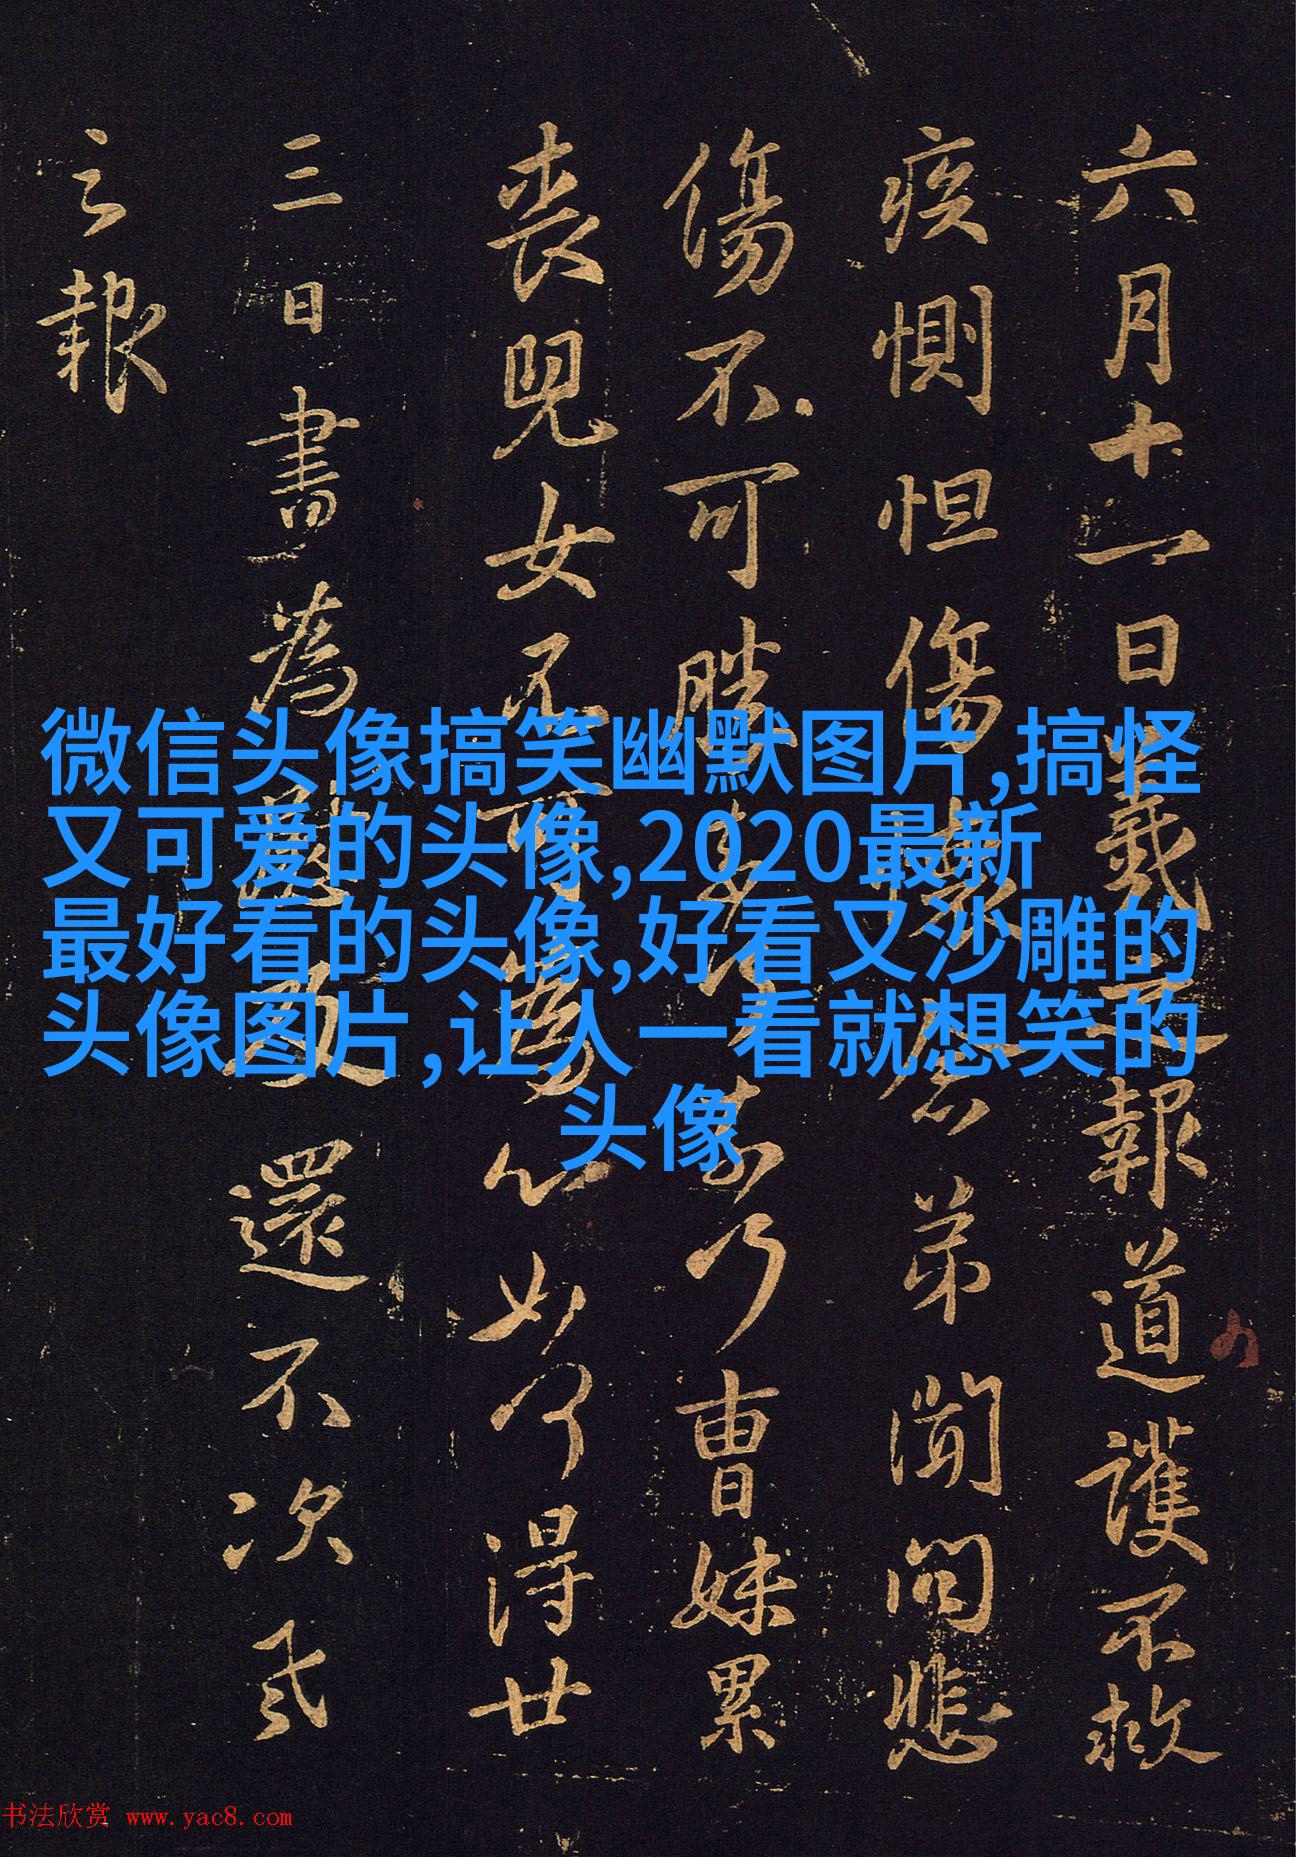 六月十一日羲之報道護不救
疾惻怛傷懷念弟聞問悲
傷不可勝奈何曹妹累
喪兒女不可為心如何得廿
三日書為慰及還不次羲
之報
微信头像搞笑幽默图片,搞怪
又可爱的头像,2020最新
最好看的头像,好看又沙雕的
头像图片,让人一看就想笑的
头像
书法欣赏 www.yac8.com